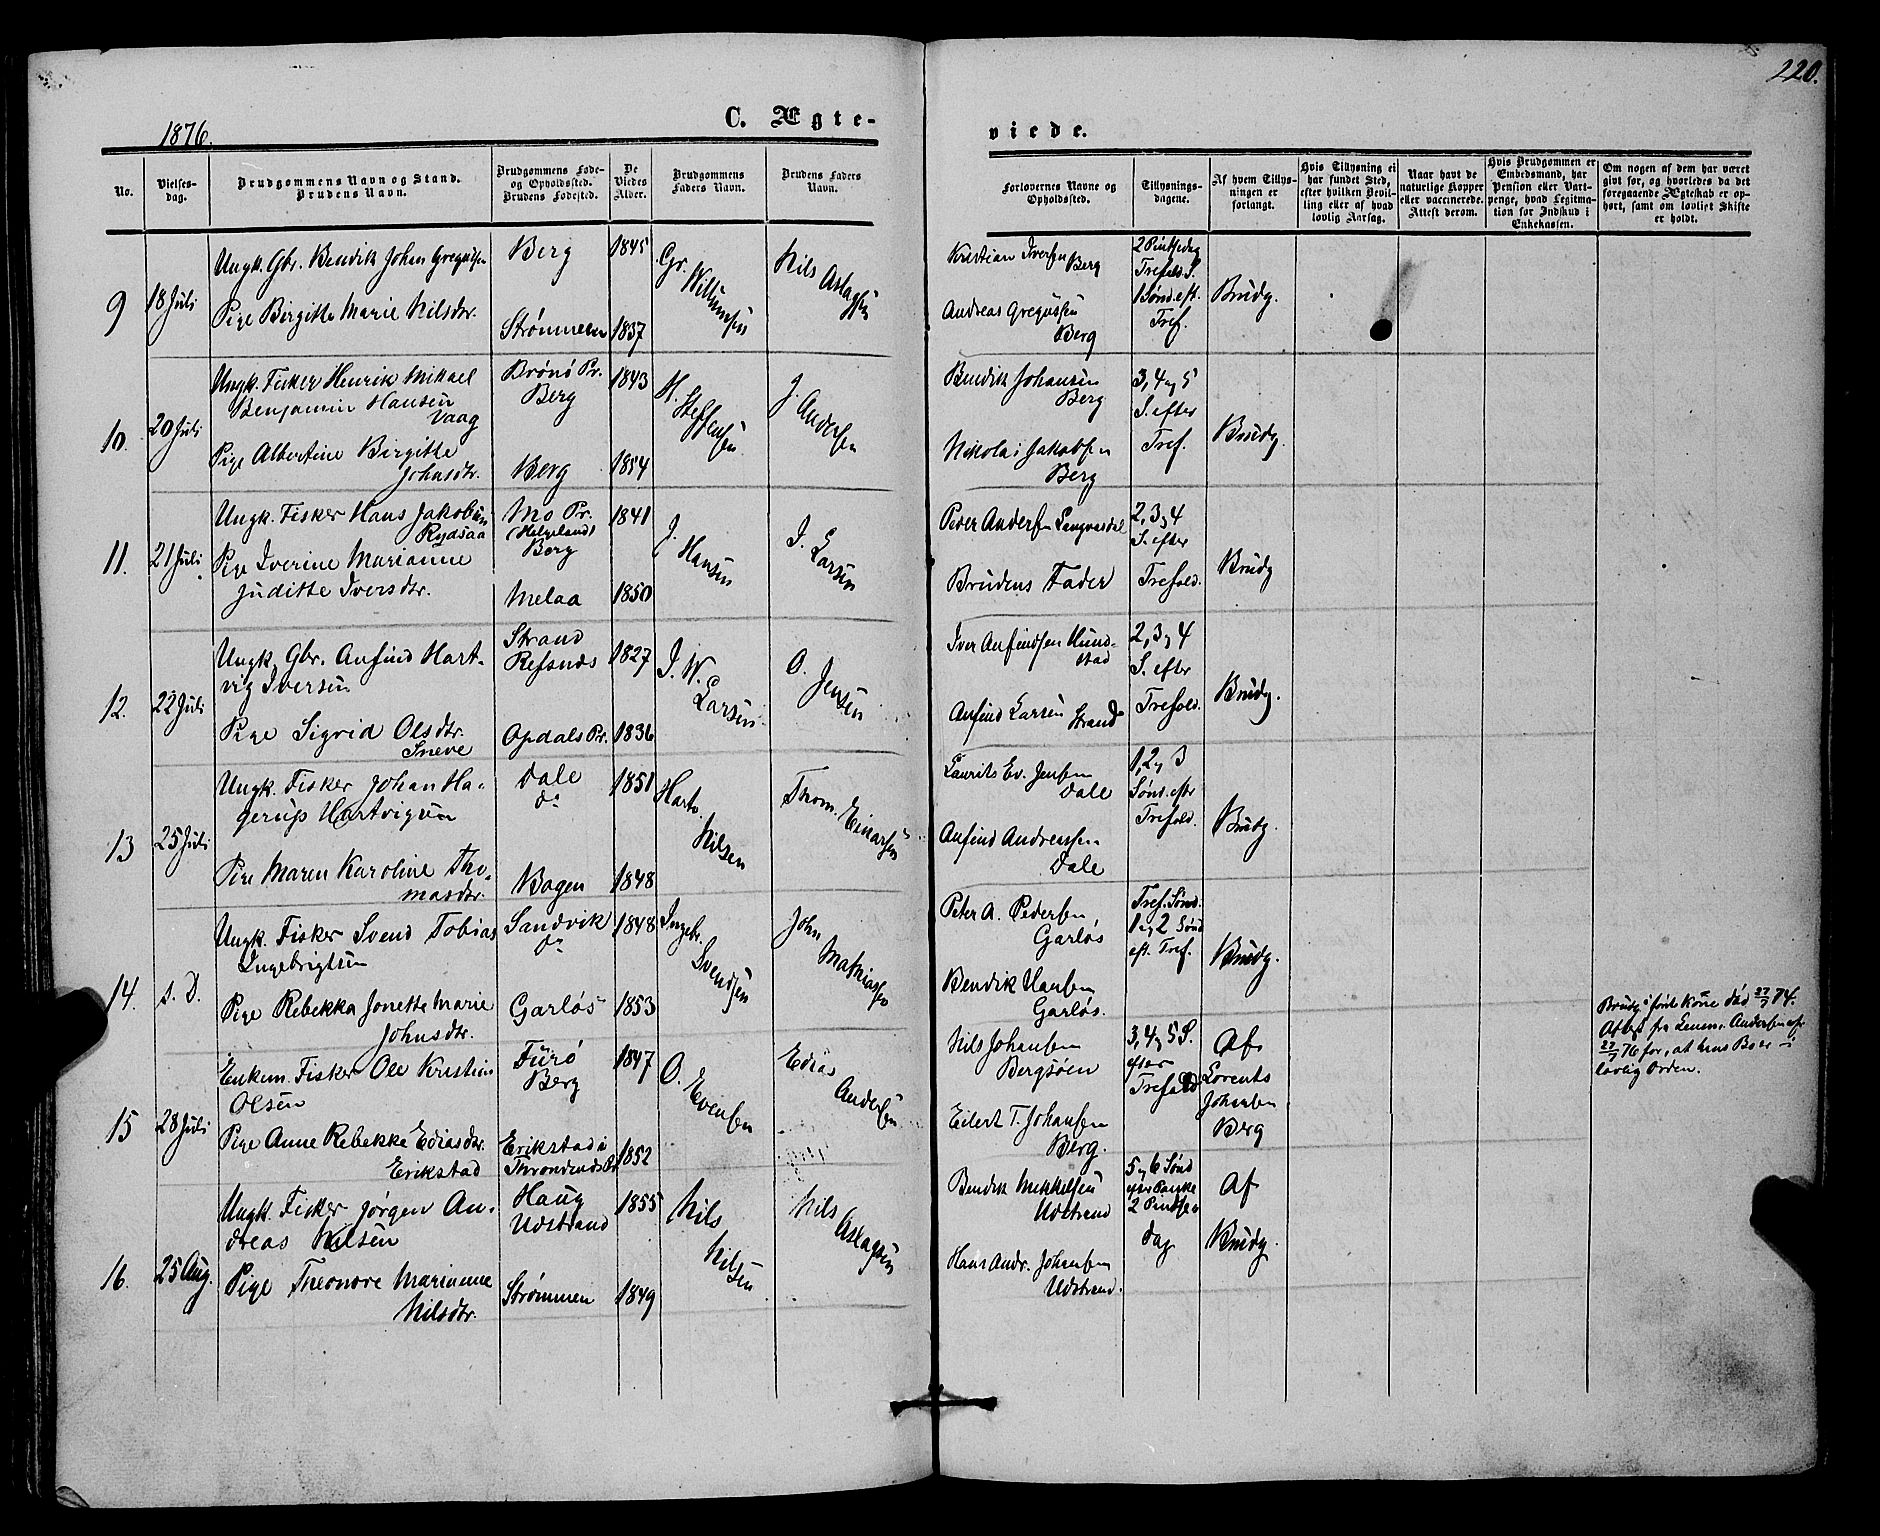 220.
1876.
C. Ægte-
viede.
No.
Vielses-
dag.
Brudgommens Navn og Stand.
Brudens Navn.
Brudgommens Føde-
og Opholdssted.
Brudens Fødested.
De
Viedes
Alder.
Brudgommens
Faders Navn.
Brudens Faders
Navn.
Forlovernes Navne og
Opholdssted.
Tillysnings-
dagene.
Af hvem Tillys-
ningen er
forlangt.
Hvis Tillysning ei
har fundet Sted,
efter hvilken Bevil-
ling eller af hvad
lovlig Aarsag.
Naar havt de
naturlige Kopper
eller vaccinerede.
Attest derom.
Hvis Brudgommen er
Embedsmand, har
Pension eller Vart-
penge, hvad Legitima-
tion for Indskud i
Enkekassen.
Om nogen af dem har været
gift før, og hvorledes da det
foregaaende Ægteskab er op-
hørt, samt om lovligt Skifte
er holdt.
9
18 Juli
Ungk. Gbr. Bendik Johan Gregusen
Pige Birgitte Marie Nilsdtr.
Berg
Strømmen
1845
1837
Gr.
Willumsen
Nils
Aslagsen
Kristian Iversen
Berg
Andreas Gregussen
Berg
2 Pintsedag
Trefols. S.
1 Sønd. eft.
Tref.
Brudg.
10.
20 Juli
Ungk. Fisker Henrik Mikael
Benjamin Hansen
Vaag
Pige Albertine Birgitte
Johnsdtr.
Brønø Pr.
Berg
Berg
1843
1854
H.
Steffensen
J.
Andersen
Bendik Johansen
Berg
Nikolai Jakobsen
Berg
3, 4 og 5
S. efter
Tref.
Brudg.
11.
21 Juli
Ungk. Fisker Hans Jakobsen
Rydsaa
Pige Iverine Marianne
Juditte Iversdtr.
Mo Pr.
(Helgeland)
Berg
Melaa
1841
1850
J.
Hansen
I.
Larsen
Peder Andersen Langvasdal
Brudens Fader
2, 3 og 4
S. efter
Trefold.
Brudg
12.
22 Juli
Ungk. Gbr. Anfind Hart-
vig Iversen
Pige Sigrid Olsdtr.
Sneve
Strand
Refsnes
Opdals Pr.
1827
1836
I. W.
Larsen
O.
Jensen
Iver Anfindsen Hund-
stad
Anfind Larsen
Strand
2, 3 og 4
S. efter
Trefold.
Brudg.
13
25 Juli
Ungk. Fisker Johan Ha-
gerup Hartvigsen
Pige Maren Karoline Tho-
masdtr.
Dale
do
Bogen
1851
1848
Hartv.
Nilsen
Thom.
Einarsen
Laurits Ev. Jensen
Dale
Anfind Andreassen
Dale
1, 2 og 3
Sønd. efter
Trefold.
Brudg.
14.
s. D.
Ungk. Fisker Svend Tobias
Ingebrigtsen
Pige Rebekka Jonette Marie
Johnsdtr.
Sandvik
do
Garløs
1848
1853
Ingebr.
Svendsen
John
Mathiassen
Peter A. Pedersen,
Garløs
Bendik Hansen
Garløs.
Tref. Sønd.
1 og 2 Sønd
eft. Tref.
Brudg.
15
28 Juli
Enkem. Fisker Ole Kristian
Olsen
Pige Anne Rebekke Ediasdtr.
Erikstad
Furø
Berg
Erikstad i
Throndenæs Pr
1847
1852
O.
Evensen
Edias
Andersen
Nils Johansen
Bergsøen
Eilert T. Johansen
Berg.
3, 4 og 5 S.
efter
Trefold
Af
Lorents
Johansen
Berg
Brudg's første Kone død 27/7 74.
Attest fra Lensm. Andersen af
27/7 76 for, at hans Bo er i
lovlig Orden.
16.
25 Aug.
Ungk. Fisker Jørgen An-
dreas Nilsen
Pige Theonore Marianne
Nilsdtr.
Haug
Udstrand
Strømmen
1855
1849
Nils
Nilsen
Nils
Aslagsen
Bendik Mikkelsen
Udstrand
Hans Andr. Johansen
Udstrand.
5 og 6 Sønd
efter Paaske
2 Pintse
dag
Af
Brudg.